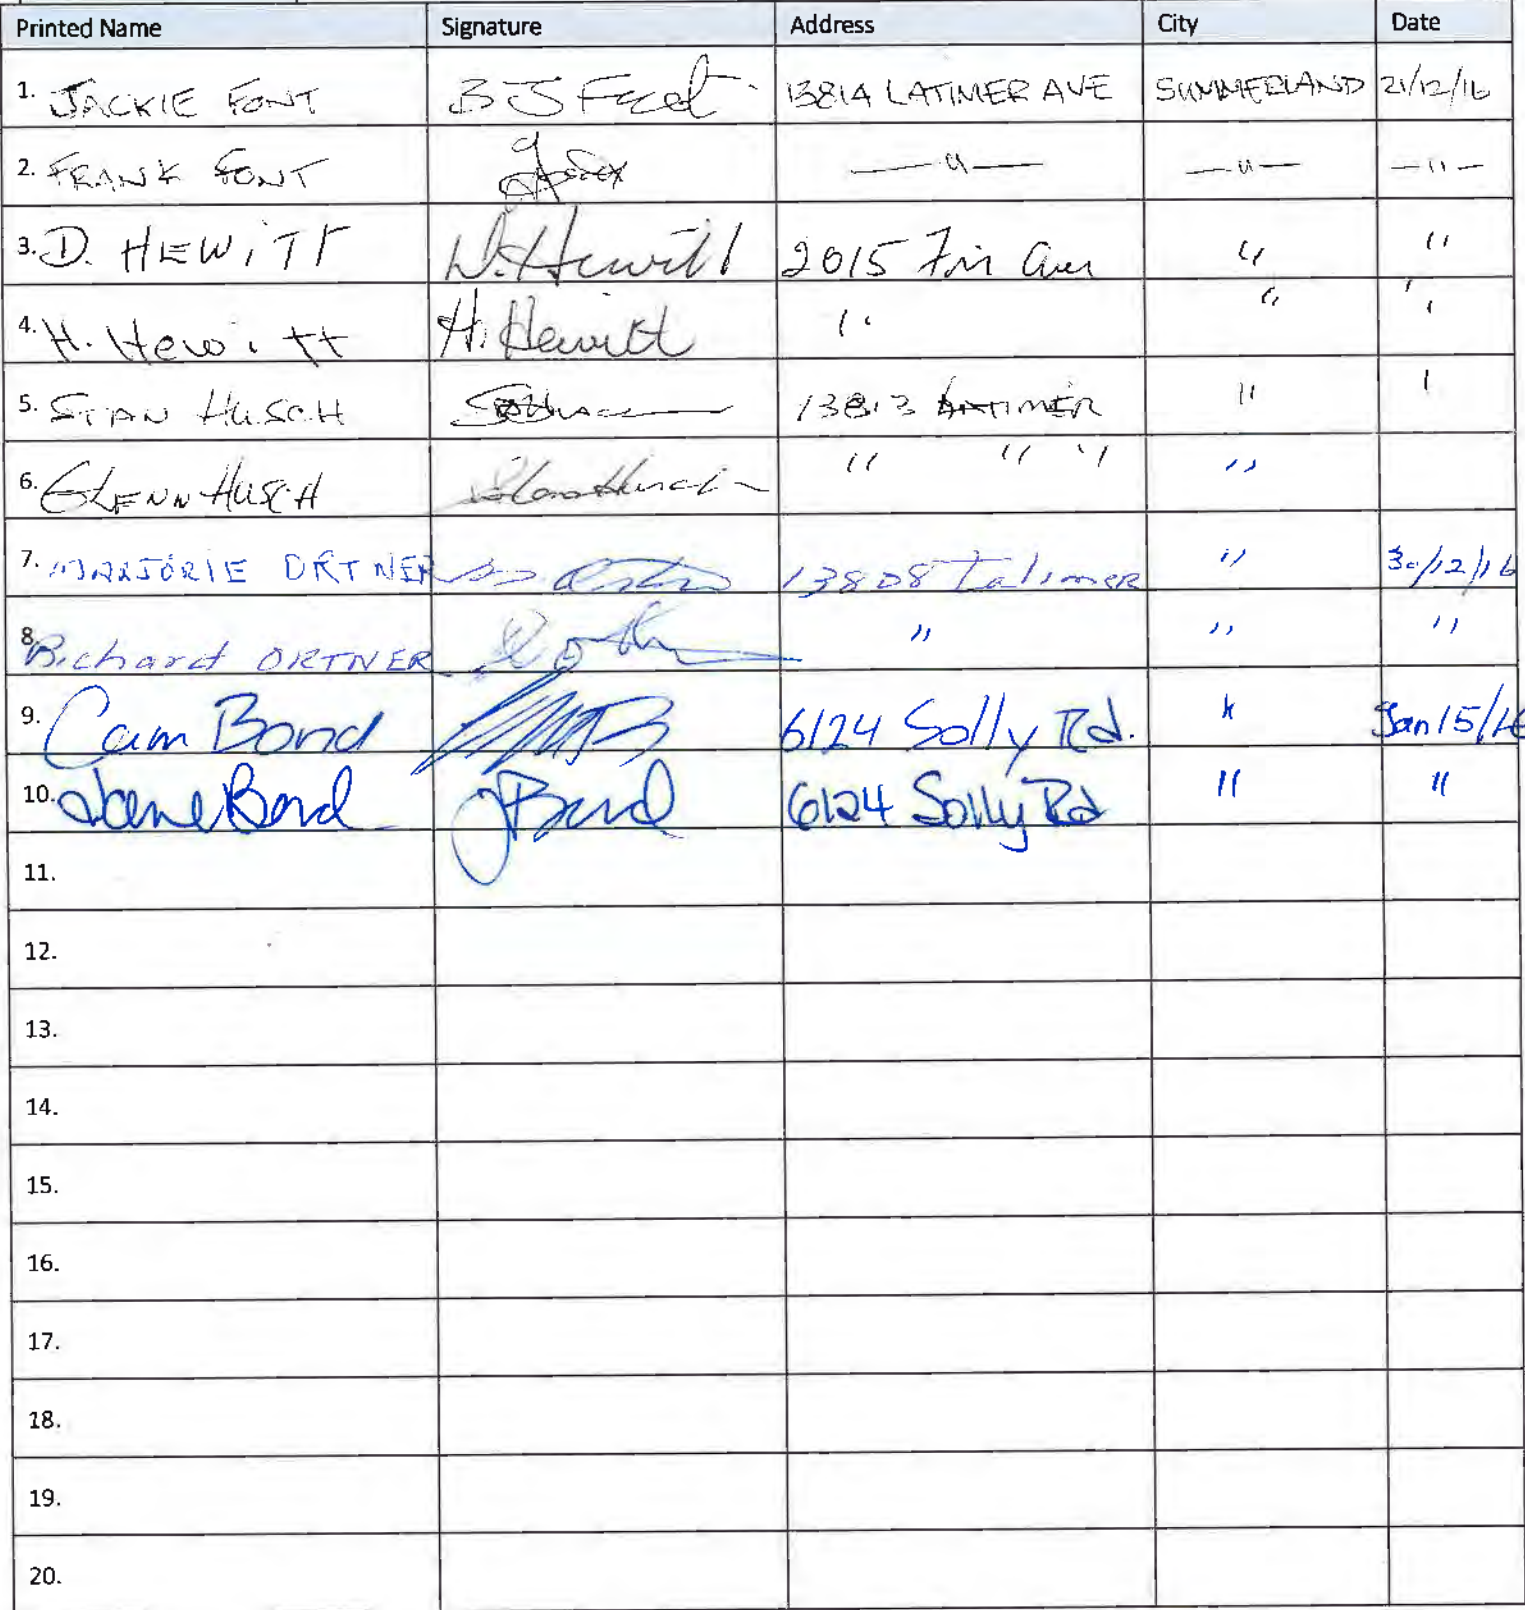 Printed Name Signature Address City Date
1. JACKIE FONT B J Font 13814 LATIMER AVE SUMMERLAND 21/12/16
2. FRANK FONT —〃— —〃— —〃—
3. D. HEWITT D. Hewitt 2015 Fir Ave 〃 〃
4. H. Hewitt H. Hewitt 〃 〃 〃
5. STAN HUSCH 13813 LATIMER 〃 〃
6. GLENN HUSCH 〃 〃 〃 〃
7. MARJORIE ORTNER 13808 Latimer 〃 30/12/16
8. Richard ORTNER 〃 〃 〃
9. Cam Bond 6124 Solly Rd. 〃 Jan 15/16
10. Jane Bond J Bond 6124 Solly Rd 〃 〃
11.
12.
13.
14.
15.
16.
17.
18.
19.
20.